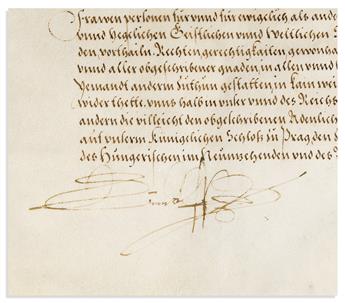 frawen personen für vnnd für ewigclich als ande
vnnd yegclichen Geistlichen vnnd Weltlichen S
den, vorthailn, Rechten gerechtigkaiten gewonha
vnnd aller obgeschribener gnaden, in allen vnnd
Yemandt andern zuthun gestatten, in kain wei
wider hette, vnns halb in vnser vnnd des Reichs
andern die villeicht den obgeschribnen Redenlich
auf vnserm Künigclichen Schloß zu Prag, den
des Hungerischen im Neuntzehenden vnd des